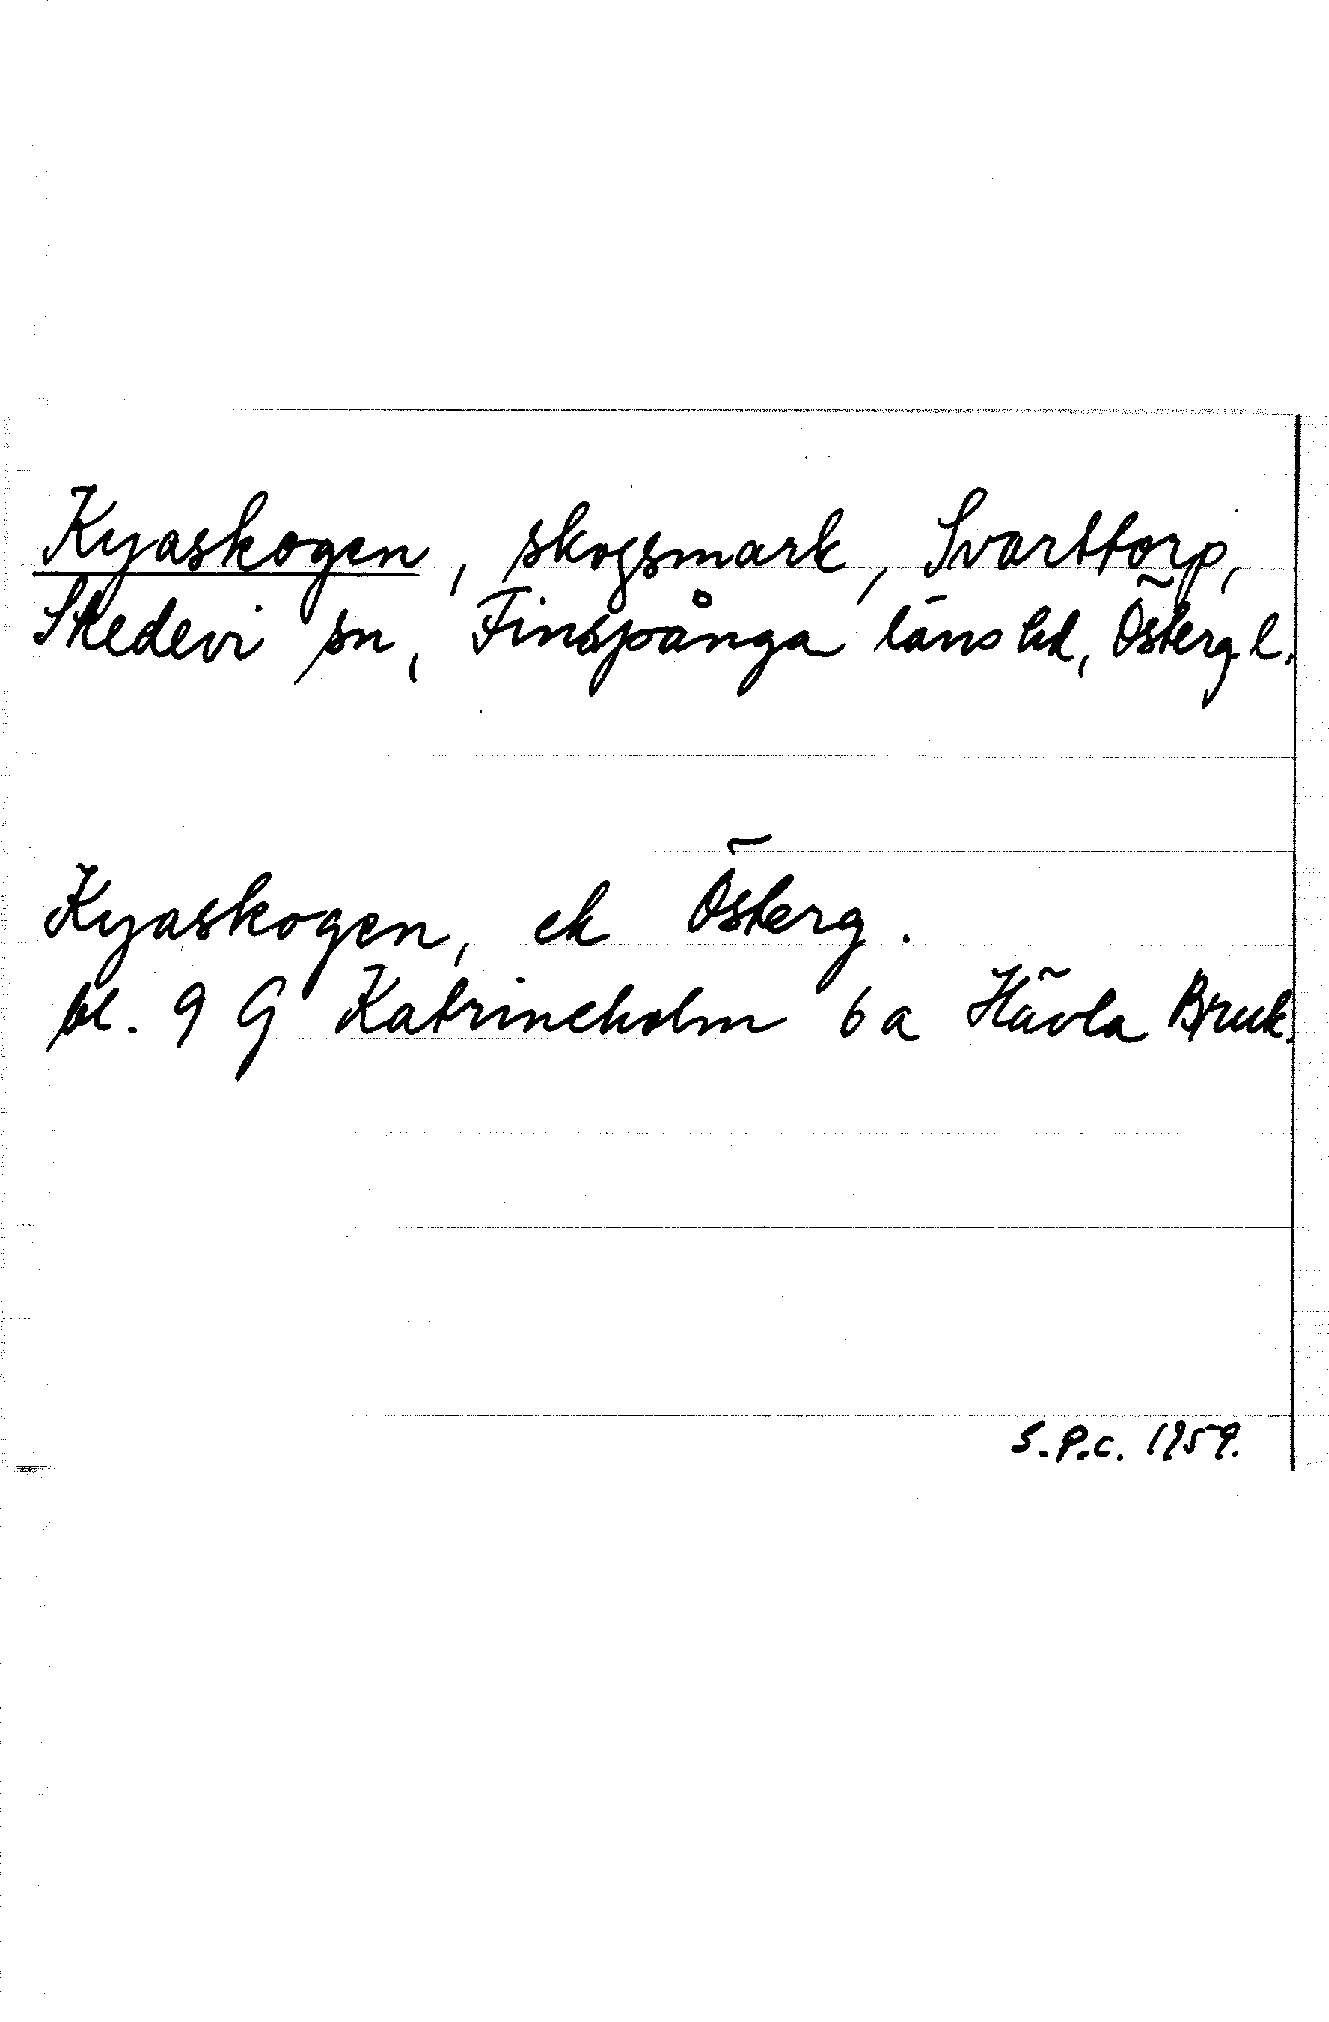 Kyaskogen, skogsmark, Svarttorp,
Skedevi sn, Finspånga läns hd, Östergl.
Kyaskogen, ek Österg.
bl. 9 G Katrineholm 6 a Hävla Bruk.
S.P.C. 1959.